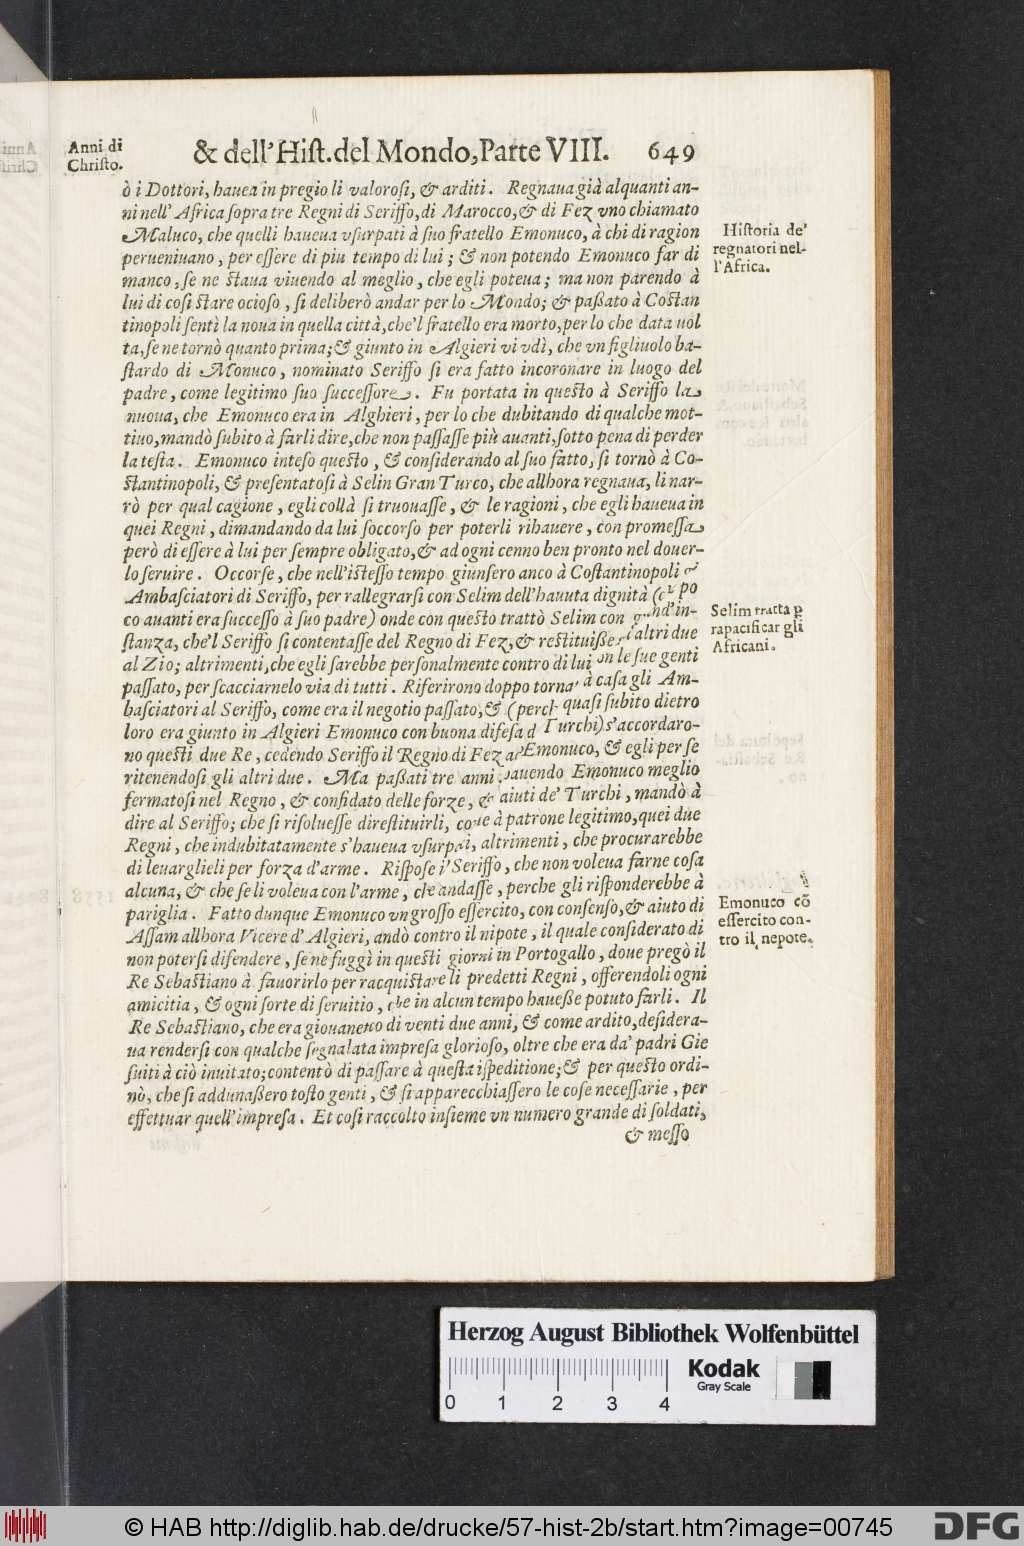 Anni di
Christo.
& dell'Hist. del Mondo, Parte VIII. 649
ò i Dottori, hauea in pregio li valorosi, & arditi. Regnaua già alquanti an-
ni nell'Africa sopra tre Regni di Seriffo, di Marocco, & di Fez vno chiamato
Maluco, che quelli haueua vsurpati à suo fratello Emonuco, à chi di ragion
perueniuano, per essere di piu tempo di lui; & non potendo Emonuco far di
manco, se ne staua viuendo al meglio, che egli poteua; ma non parendo à
lui di cosi stare ocioso, si deliberò andar per lo Mondo; & passato à Costan
tinopoli sentì la noua in quella città, che'l fratello era morto, per lo che data uol
ta, se ne tornò quanto prima; & giunto in Algieri vi vdì, che vn figliuolo ba-
stardo di Monuco, nominato Seriffo si era fatto incoronare in luogo del
padre, come legitimo suo successore. Fu portata in questo à Seriffo la
nuoua, che Emonuco era in Alghieri, per lo che dubitando di qualche mot-
tiuo, mandò subito à farli dire, che non passasse più auanti, sotto pena di perder
la testa. Emonuco inteso questo, & considerando al suo fatto, si tornò à Co-
stantinopoli, & presentatosi à Selin Gran Turco, che allhora regnaua, li nar-
rò per qual cagione, egli collà si truouasse, & le ragioni, che egli haueua in
quei Regni, dimandando da lui soccorso per poterli rihauere, con promessa
però di essere à lui per sempre obligato, & ad ogni cenno ben pronto nel douer-
lo seruire. Occorse, che nell'istesso tempo giunsero anco à Costantinopoli
Ambasciatori di Seriffo, per rallegrarsi con Selim dell'hauuta dignità ( po
co auanti era successo à suo padre) onde con questo trattò Selim con nd'in-
stanza, che'l Seriffo si contentasse del Regno di Fez, & restituisse altri due
al Zio; altrimenti, che egli sarebbe personalmente contro di lui on le sue genti
passato, per scacciarnelo via di tutti. Riferirono doppo torna à casa gli Am-
basciatori al Seriffo, come era il negotio passato, & (perch quasi subito dietro
loro era giunto in Algieri Emonuco con buona difesa d Turchi) s'accordaro-
no questi due Re, cedendo Seriffo il Regno di Fez ad Emonuco, & egli per se
ritenendosi gli altri due. Ma passati tre anni hauendo Emonuco meglio
fermatosi nel Regno, & confidato delle forze, & aiuti de' Turchi, mandò à
dire al Seriffo; che si risoluesse direstituirli, come à patrone legitimo, quei due
Regni, che indubitatamente s'haueua vsurpati, altrimenti, che procurarebbe
di leuarglieli per forza d'arme. Rispose il Seriffo, che non voleua farne cosa
alcuna, & che se li voleua con l'arme, che andasse, perche gli risponderebbe à
pariglia. Fatto dunque Emonuco vn grosso essercito, con consenso, & aiuto di
Assam allhora Vicere d'Algieri, andò contro il nipote, il quale considerato di
non potersi difendere, se ne fuggì in questi giorni in Portogallo, doue pregò il
Re Sebastiano à fauorirlo per racquistare li predetti Regni, offerendoli ogni
amicitia, & ogni sorte di seruitio, che in alcun tempo hauesse potuto farli. Il
Re Sebastiano, che era giouanetto di venti due anni, & come ardito, desidera-
ua rendersi con qualche segnalata impresa glorioso, oltre che era da' padri Gie
suiti à ciò inuitato; contentò di passare à questa ispeditione; & per questo ordi-
nò, che si addunassero tosto genti, & si apparecchiassero le cose necessarie, per
effettuar quell'impresa. Et cosi raccolto insieme vn numero grande di soldati,
& messo
Historia de'
regnatori nel-
l'Africa.
Selim tratta p
rapacificar gli
Africani.
Emonuco cõ
essercito con-
tro il nepote.
Herzog August Bibliothek Wolfenbüttel
Kodak
Gray Scale
0 1 2 3 4
© HAB http://diglib.hab.de/drucke/57-hist-2b/start.htm?image=00745
DFG